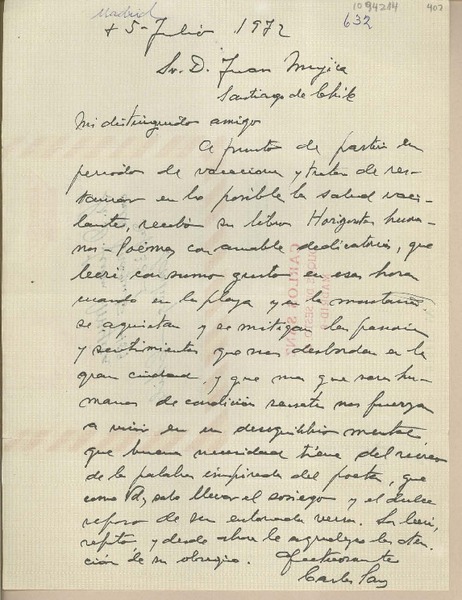 Madrid
1094214
407
632
+ 5 - Julio 1972
Sr. D. Juan Mujica
Santiago de Chile
Mi distinguido amigo
A punto de partir en
periodo de vacaciones y tratar de res-
taurar en lo posible la salud vaci-
lante, recibo su libro Horizontes huma-
nos - Poemas con amable dedicatoria, que
leeré con sumo gusto en esas horas
cuando en la playa y en la montaña
se aquietan y se mitigan las pasiones
y sentimientos que nos desbordan en la
gran ciudad, y que mas que seres hu-
manos de condición sensata nos fuerzan
a vivir en un desequilibrio mental,
que buena necesidad tiene del recreo
de la palabra inspirada del poeta, que
como Vd, sabe llevar el sosiego y el dulce
reposo de su entonado verso. Lo leeré,
repito y desde ahora le agradezco la aten-
ción de su obsequio. Afectuosamente
Carlos Sanz